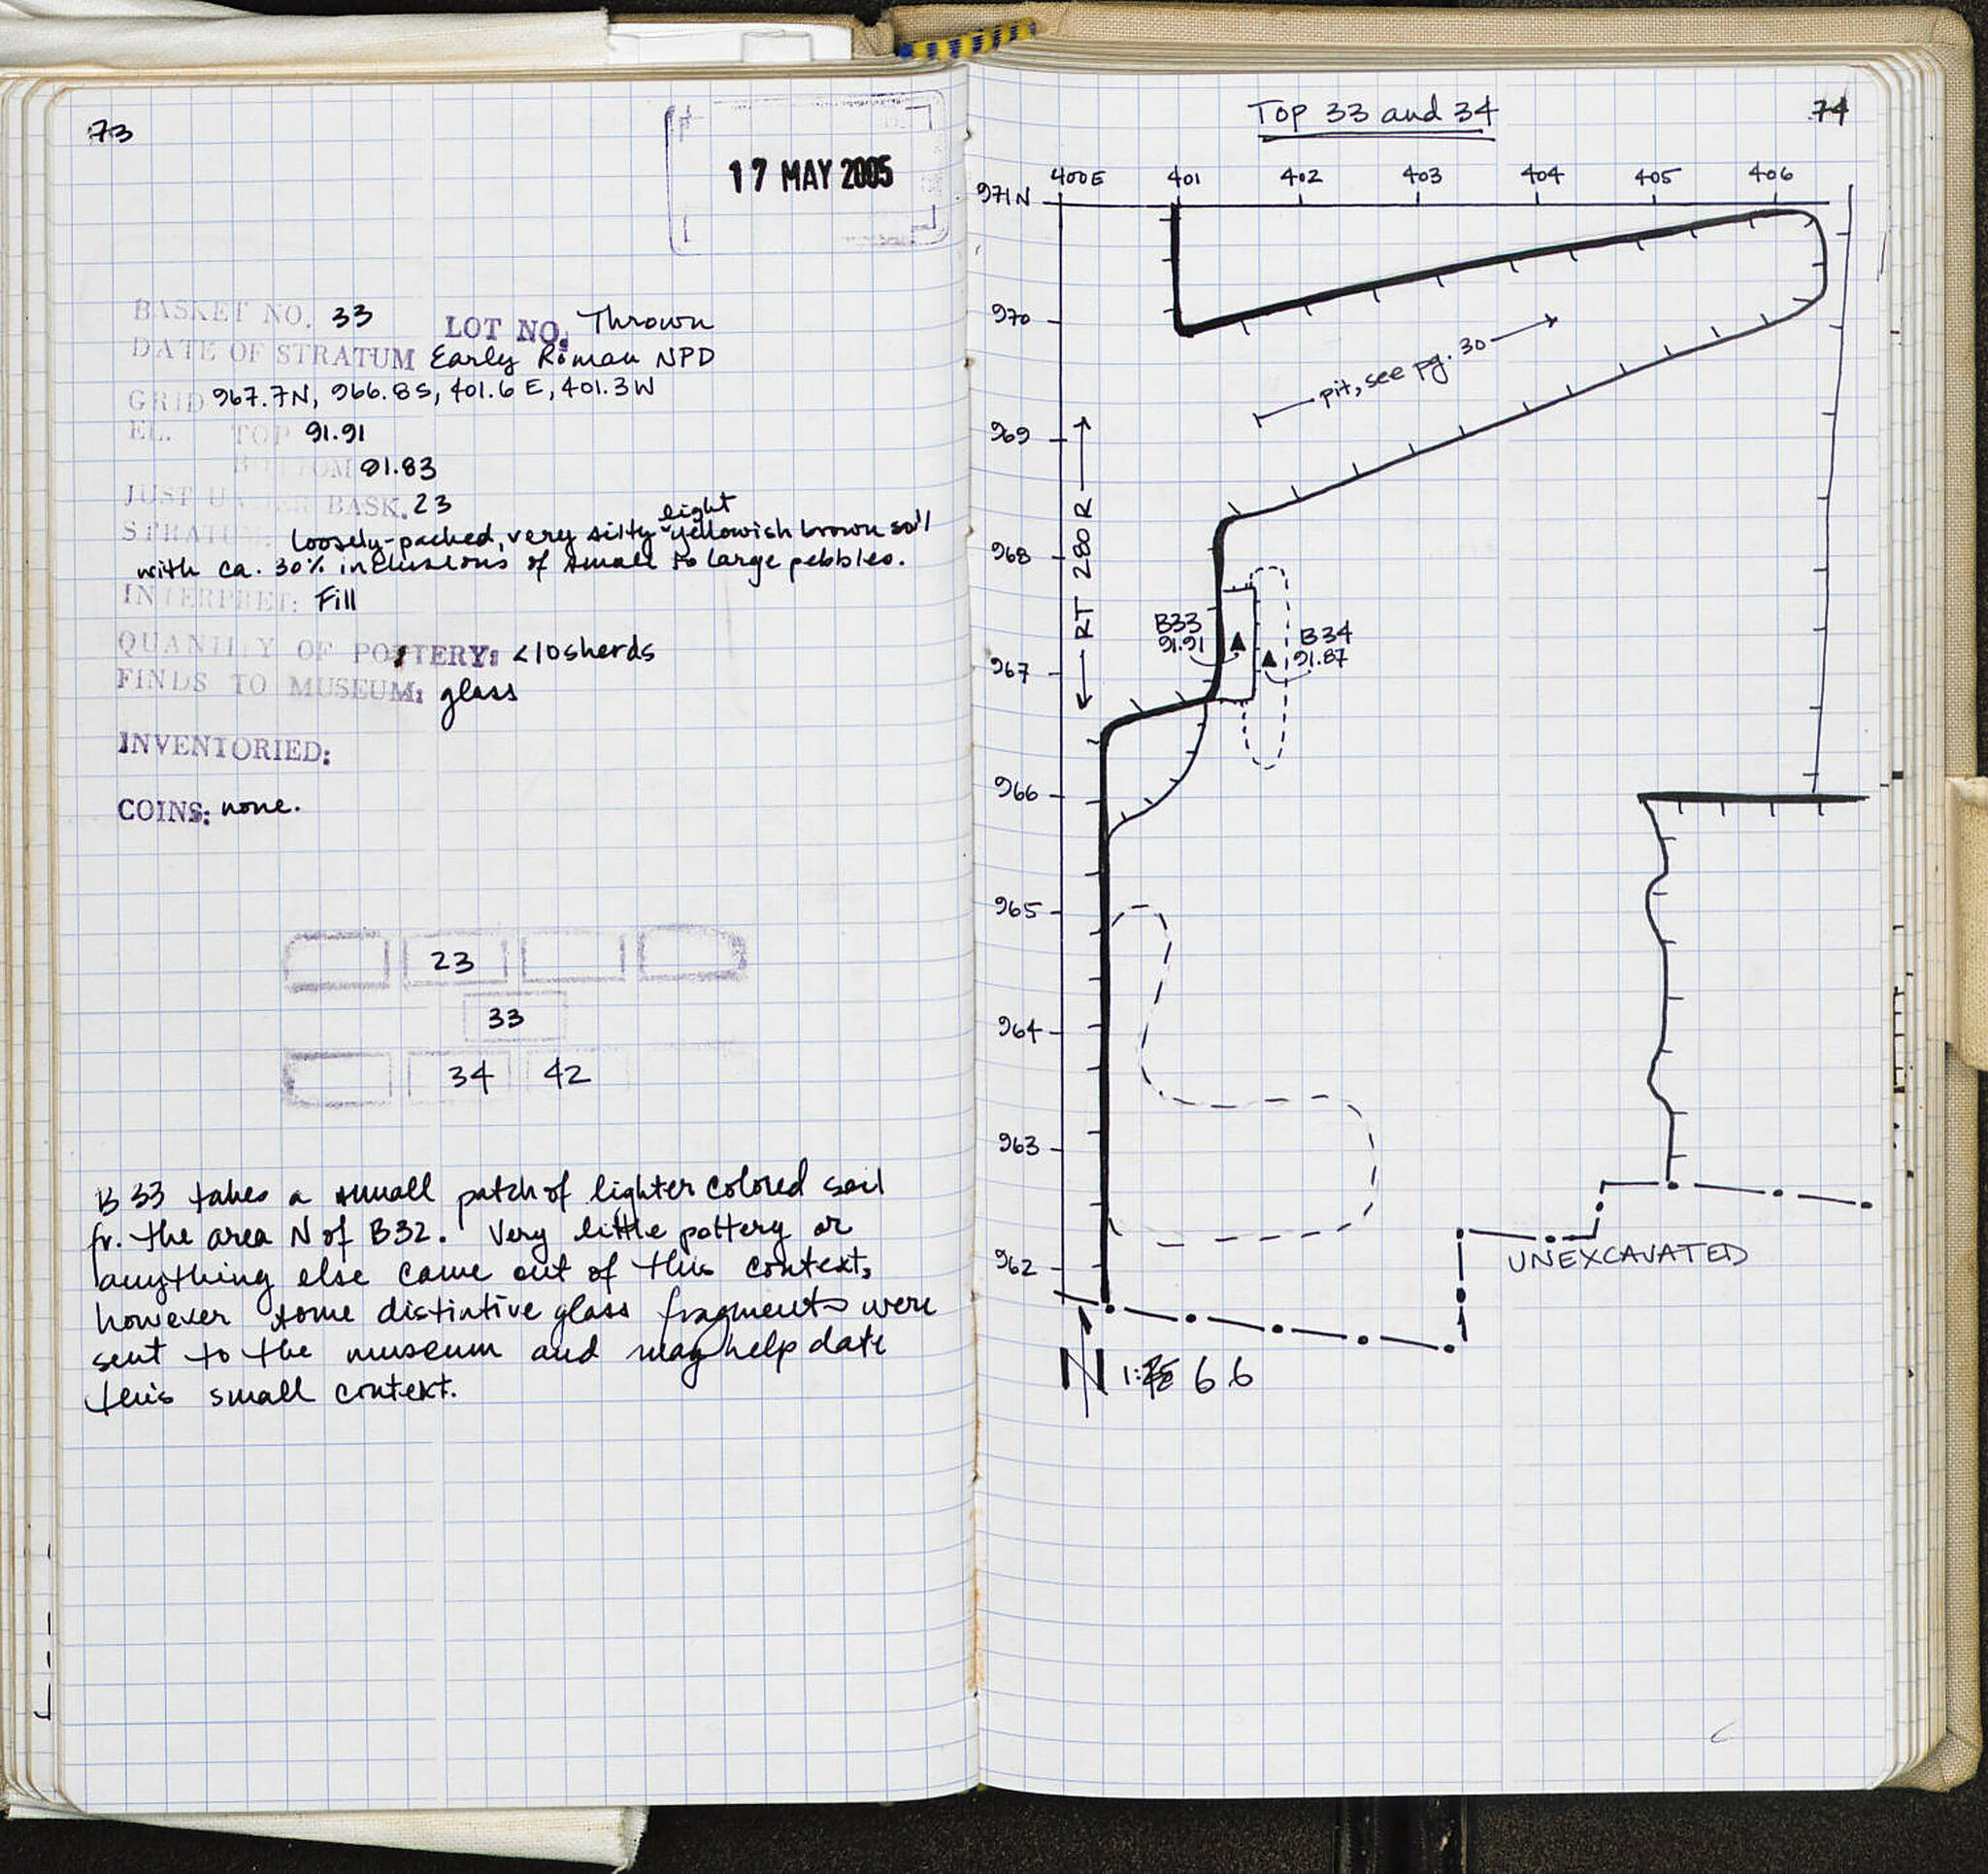 73
17 MAY 2005
BASKET NO. 33 LOT NO. Thrown
DATE OF STRATUM Early Roman NPD
GRID 967.7N, 966.8S, 401.6E, 401.3W
EL. TOP 91.91
BOTTOM 91.83
JUST UNDER BASK. 23
light
STRATUM: loosely-packed, very silty yellowish brown soil
with ca. 30% inclusions of small to large pebbles.
INTERPRET: Fill
QUANTITY OF POTTERY: <10 sherds
FINDS TO MUSEUM: glass
INVENTORIED:
COINS: none.
23
33
34 42
B33 takes a small patch of lighter colored soil
fr. the area N of B32. Very little pottery or
anything else came out of this context,
however some distintive glass fragments were
sent to the museum and may help date
this small context.
Top 33 and 34
74
400E 401 402 403 404 405 406
971N
970
pit, see pg. 30
969
968
RT 280 R
B33
91.91
B34
91.87
967
966
965
964
963
962
UNEXCAVATED
N 1: 66